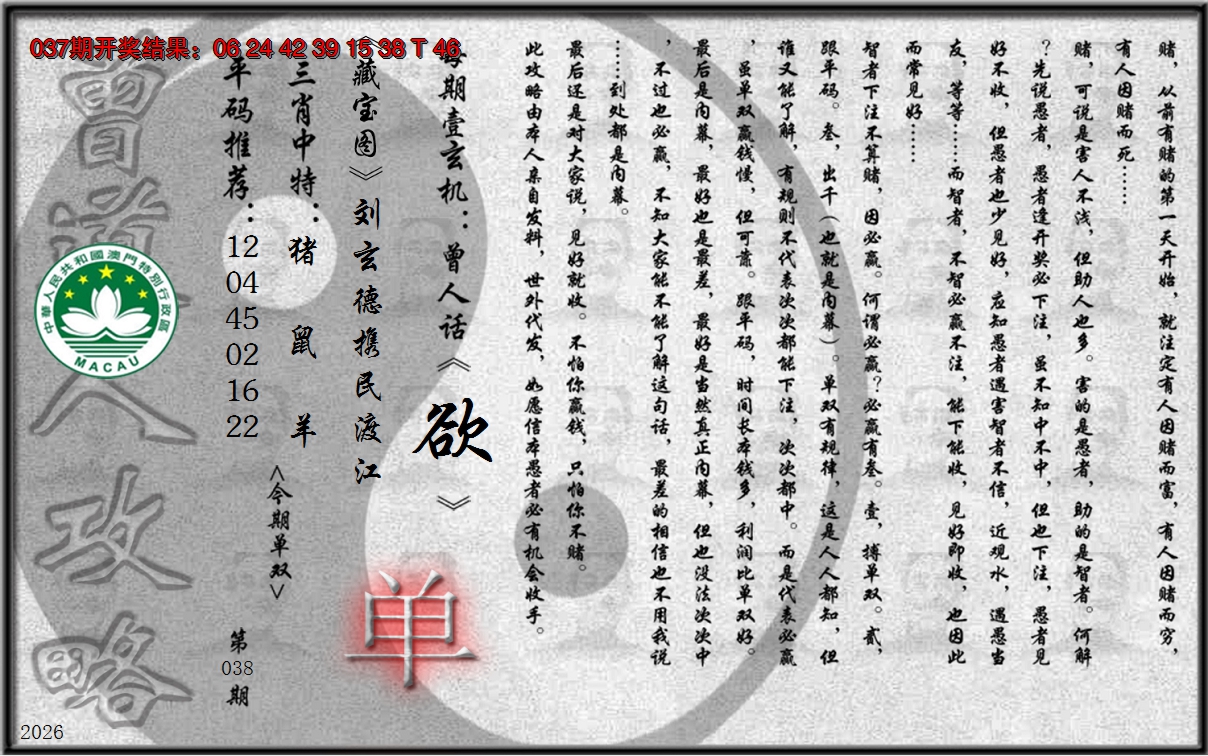 037期开奖结果：06 24 42 39 15 38 T 46
赌，从前有赌的第一天开始，就注定有人因赌而富，有人因赌而穷，
有人因赌而死……
赌，可说是害人不浅，但助人也多。害的是愚者，助的是智者。何解
？先说愚者，愚者逢开奖必下注，虽不知中不中，但也下注，愚者见
好不收，但愚者也少见好，应知愚者遇害智者不信，近观水，遇愚当
友，等等……而智者，不智必赢不注，能下能收，见好即收，也因此
而常见好……
智者下注不算赌，因必赢。何谓必赢？必赢有叁。壹，搏单双。贰，
跟平码。叁，出千（也就是内幕）。单双有规律，这是人人都知，但
谁又能了解，有规则不代表次次都能下注，次次都中。而是代表必赢
，虽单双赢钱慢，但可靠。跟平码，时间长本钱多，利润比单双好。
最后是内幕，最好也是最差，最好是当然真正内幕，但也没法次次中
，不过也必赢，不知大家能不能了解这句话，最差的相信也不用我说
……到处都是内幕。
最后还是对大家说，见好就收。不怕你赢钱，只怕你不赌。
此攻略由本人亲自发料，世外代发，如愿信本愚者必有机会收手。
每期壹玄机：曾人话《欲》
《藏宝图》刘玄德携民渡江
三肖中特：猪 鼠 羊
平码推荐：12 04 45 02 16 22
<今期单双>
单
第
038
期
曾道人攻略
中華人民共和國澳門特別行政區
MACAU
2026